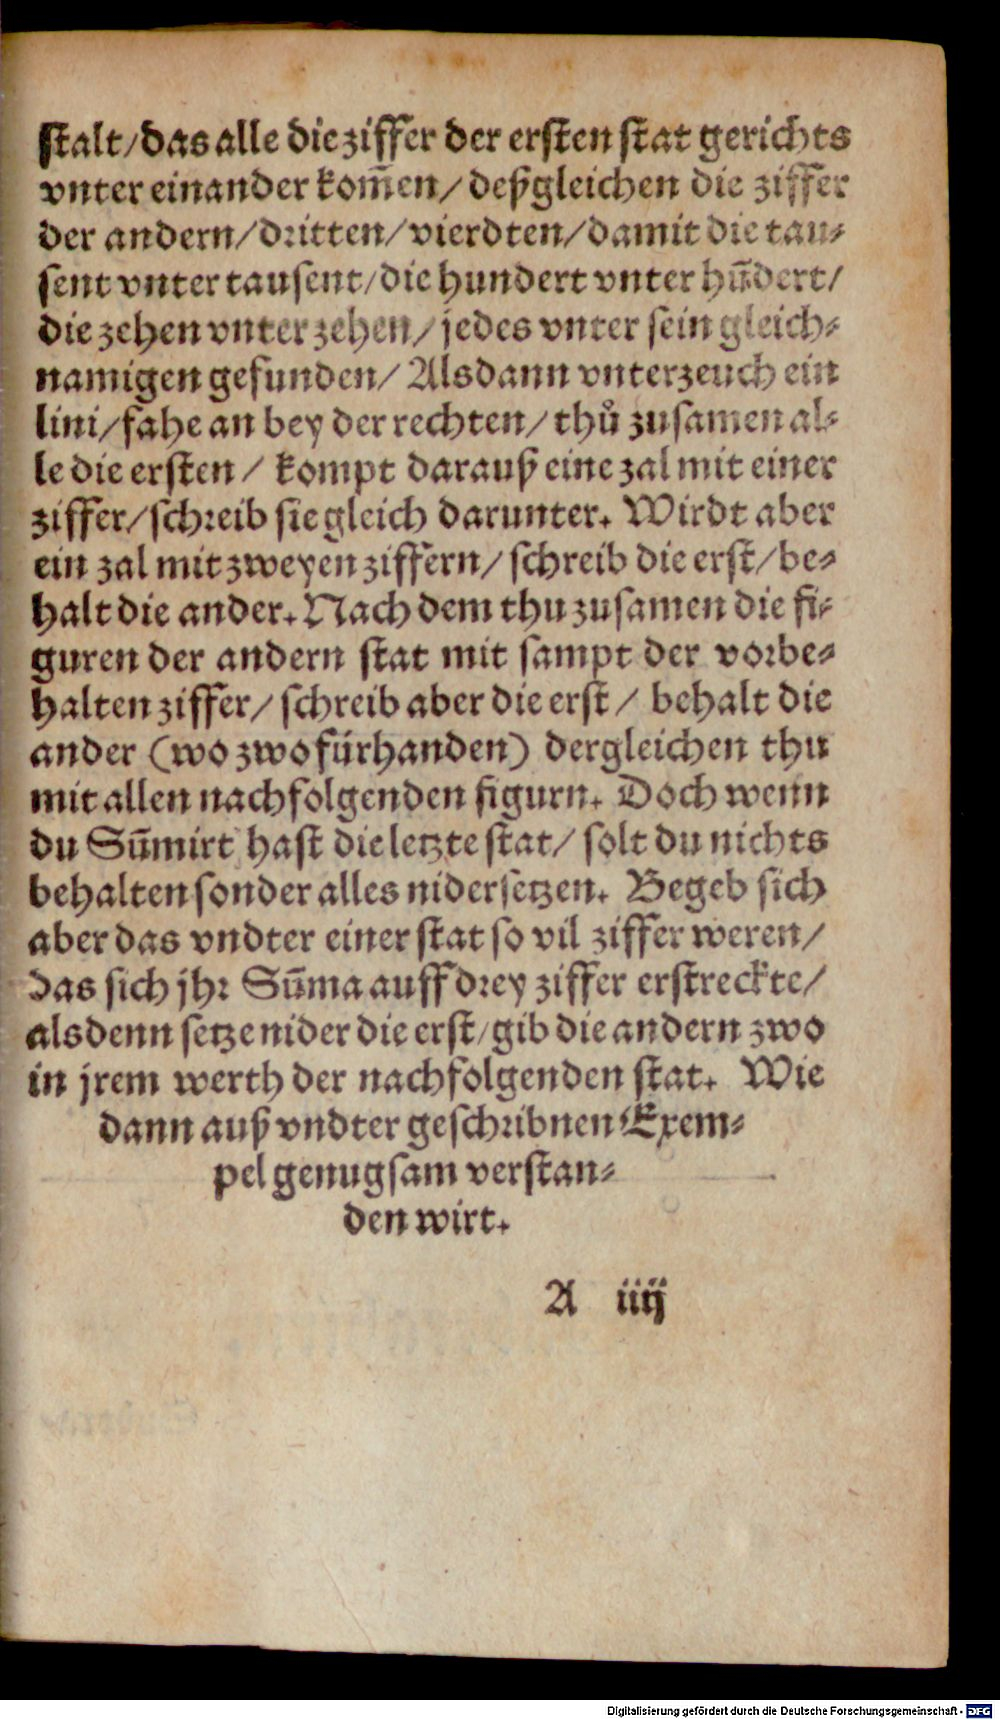 stalt/das alle die ziffer der ersten stat gerichts
vnter einander kom̃en/ deßgleichen die ziffer
der andern/dritten/vierdten/damit die tau⸗
sent vnter tausent/die hundert vnter hũdert/
die zehen vnter zehen/ jedes vnter sein gleich⸗
namigen gefunden/ Alsdann vnterzeuch ein
lini/fahe an bey der rechten/ thů zusamen al⸗
le die ersten/ kompt darauß eine zal mit einer
ziffer/schreib sie gleich darunter. Wirdt aber
ein zal mit zweyen ziffern/ schreib die erst/be⸗
halt die ander. Nach dem thu zusamen die fi⸗
guren der andern stat mit sampt der vorbe⸗
halten ziffer/ schreib aber die erst/ behalt die
ander (wo zwo fürhanden) dergleichen thu
mit allen nachfolgenden figurn. Doch wenn
du Sum̃irt hast die letzte stat/ solt du nichts
behalten sonder alles nidersetzen. Begeb sich
aber das vndter einer stat so vil ziffer weren/
das sich jhr Sum̃a auff drey ziffer erstreckte/
alsdenn setze nider die erst/gib die andern zwo
in jrem werth der nachfolgenden stat. Wie
dann auß vndter geschribnen Exem⸗
pel genugsam verstan⸗
den wirt.
A iiij
Digitalisierung gefördert durch die Deutsche Forschungsgemeinschaft - DFG